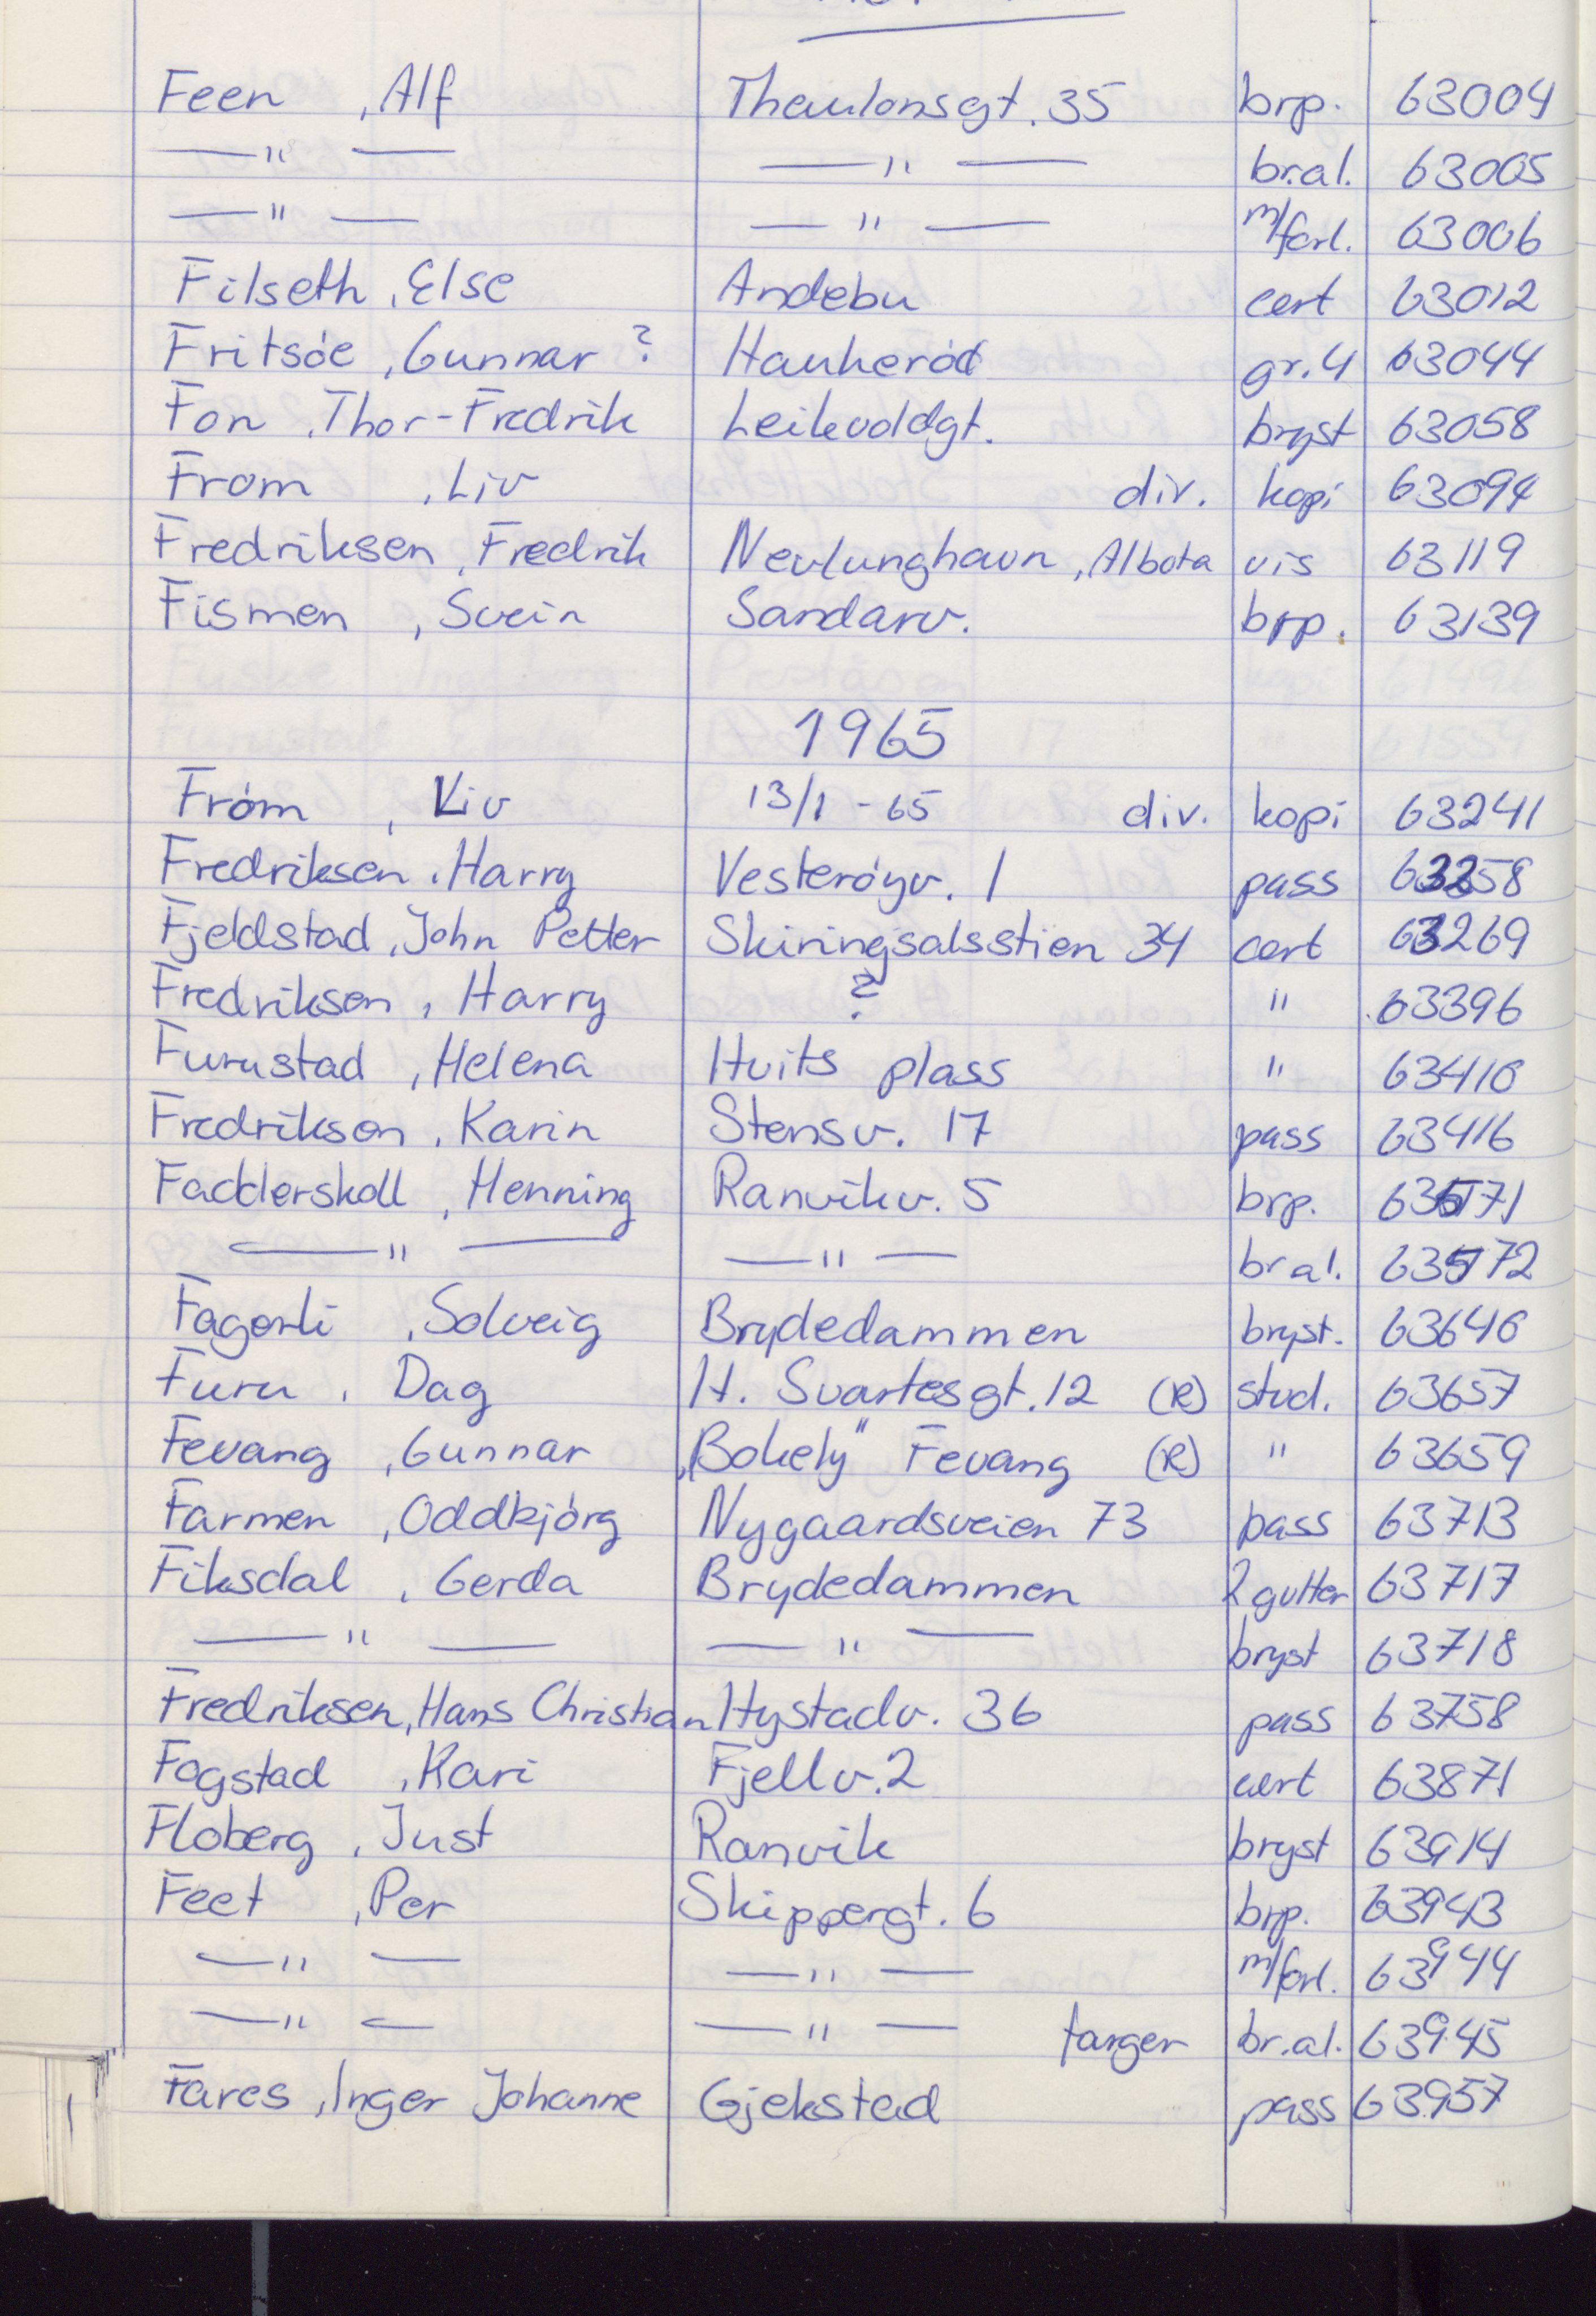 Feen , Alf Thaulonsgt. 35 brp. 63004
—"— —"— br.al. 63005
—"— —"— m/forl. 63006
Filseth , Else Andebu cert 63012
Fritsøe , Gunnar ? Haukerød gr. 4 63044
Fon , Thor-Fredrik Leikvoldgt. bryst 63058
From , Liv div. kopi 63094
Fredriksen , Fredrik Nevlunghavn , Albota vis 63119
Fismen , Svein Sandarv. brp. 63139
1965
Frøm , Liv 13/1 - 65 div. kopi 63241
Fredriksen , Harry Vesterøyv. 1 pass 63258
Fjeldstad , John Petter Skiringsalsstien 34 cert 63269
Fredriksen , Harry ? " 63396
Furustad , Helena Hvits plass " 63410
Fredriksen , Karin Stensv. 17 pass 63416
Fadderskoll , Henning Ranvikv. 5 brp. 63571
—"— —"— br al. 63572
Fagerli , Solveig Brydedammen bryst. 63640
Furu , Dag H. Svartesgt. 12 (R) stud. 63657
Fevang , Gunnar „Bokely" Fevang (R) " 63659
Farmen , Oddbjørg Nygaardsveien 73 pass 63713
Fiksdal , Gerda Brydedammen 2 gutter 63717
—"— —"— bryst 63718
Fredriksen , Hans Christian Hystadv. 36 pass 63758
Fogstad , Kari Fjellv. 2 cert 63871
Floberg , Just Ranvik bryst 63914
Feet , Per Skippergt. 6 brp. 63943
—"— —"— m/forl. 63944
—"— —"— farger br.al. 63945
Fares , Inger Johanne Gjekstad pass 63957